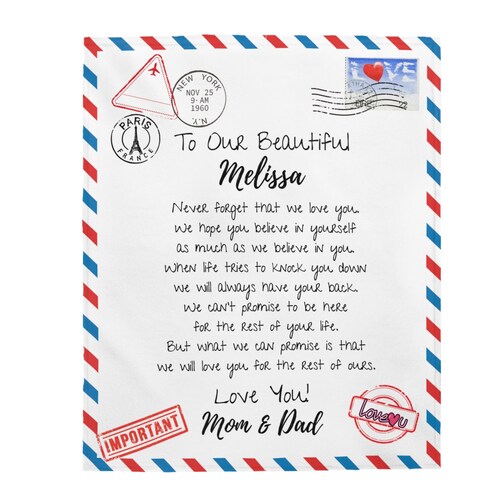 NEW YORK
NOV 25
9·AM
1960
N.Y.
PARIS
FRANCE
To Our Beautiful
Melissa
Never forget that we love you.
We hope you believe in yourself
as much as we believe in you.
When life tries to knock you down
we will always have your back.
We can't promise to be here
for the rest of your life.
But what we can promise is that
we will love you for the rest of ours.
Love You!
Mom & Dad
IMPORTANT
love u